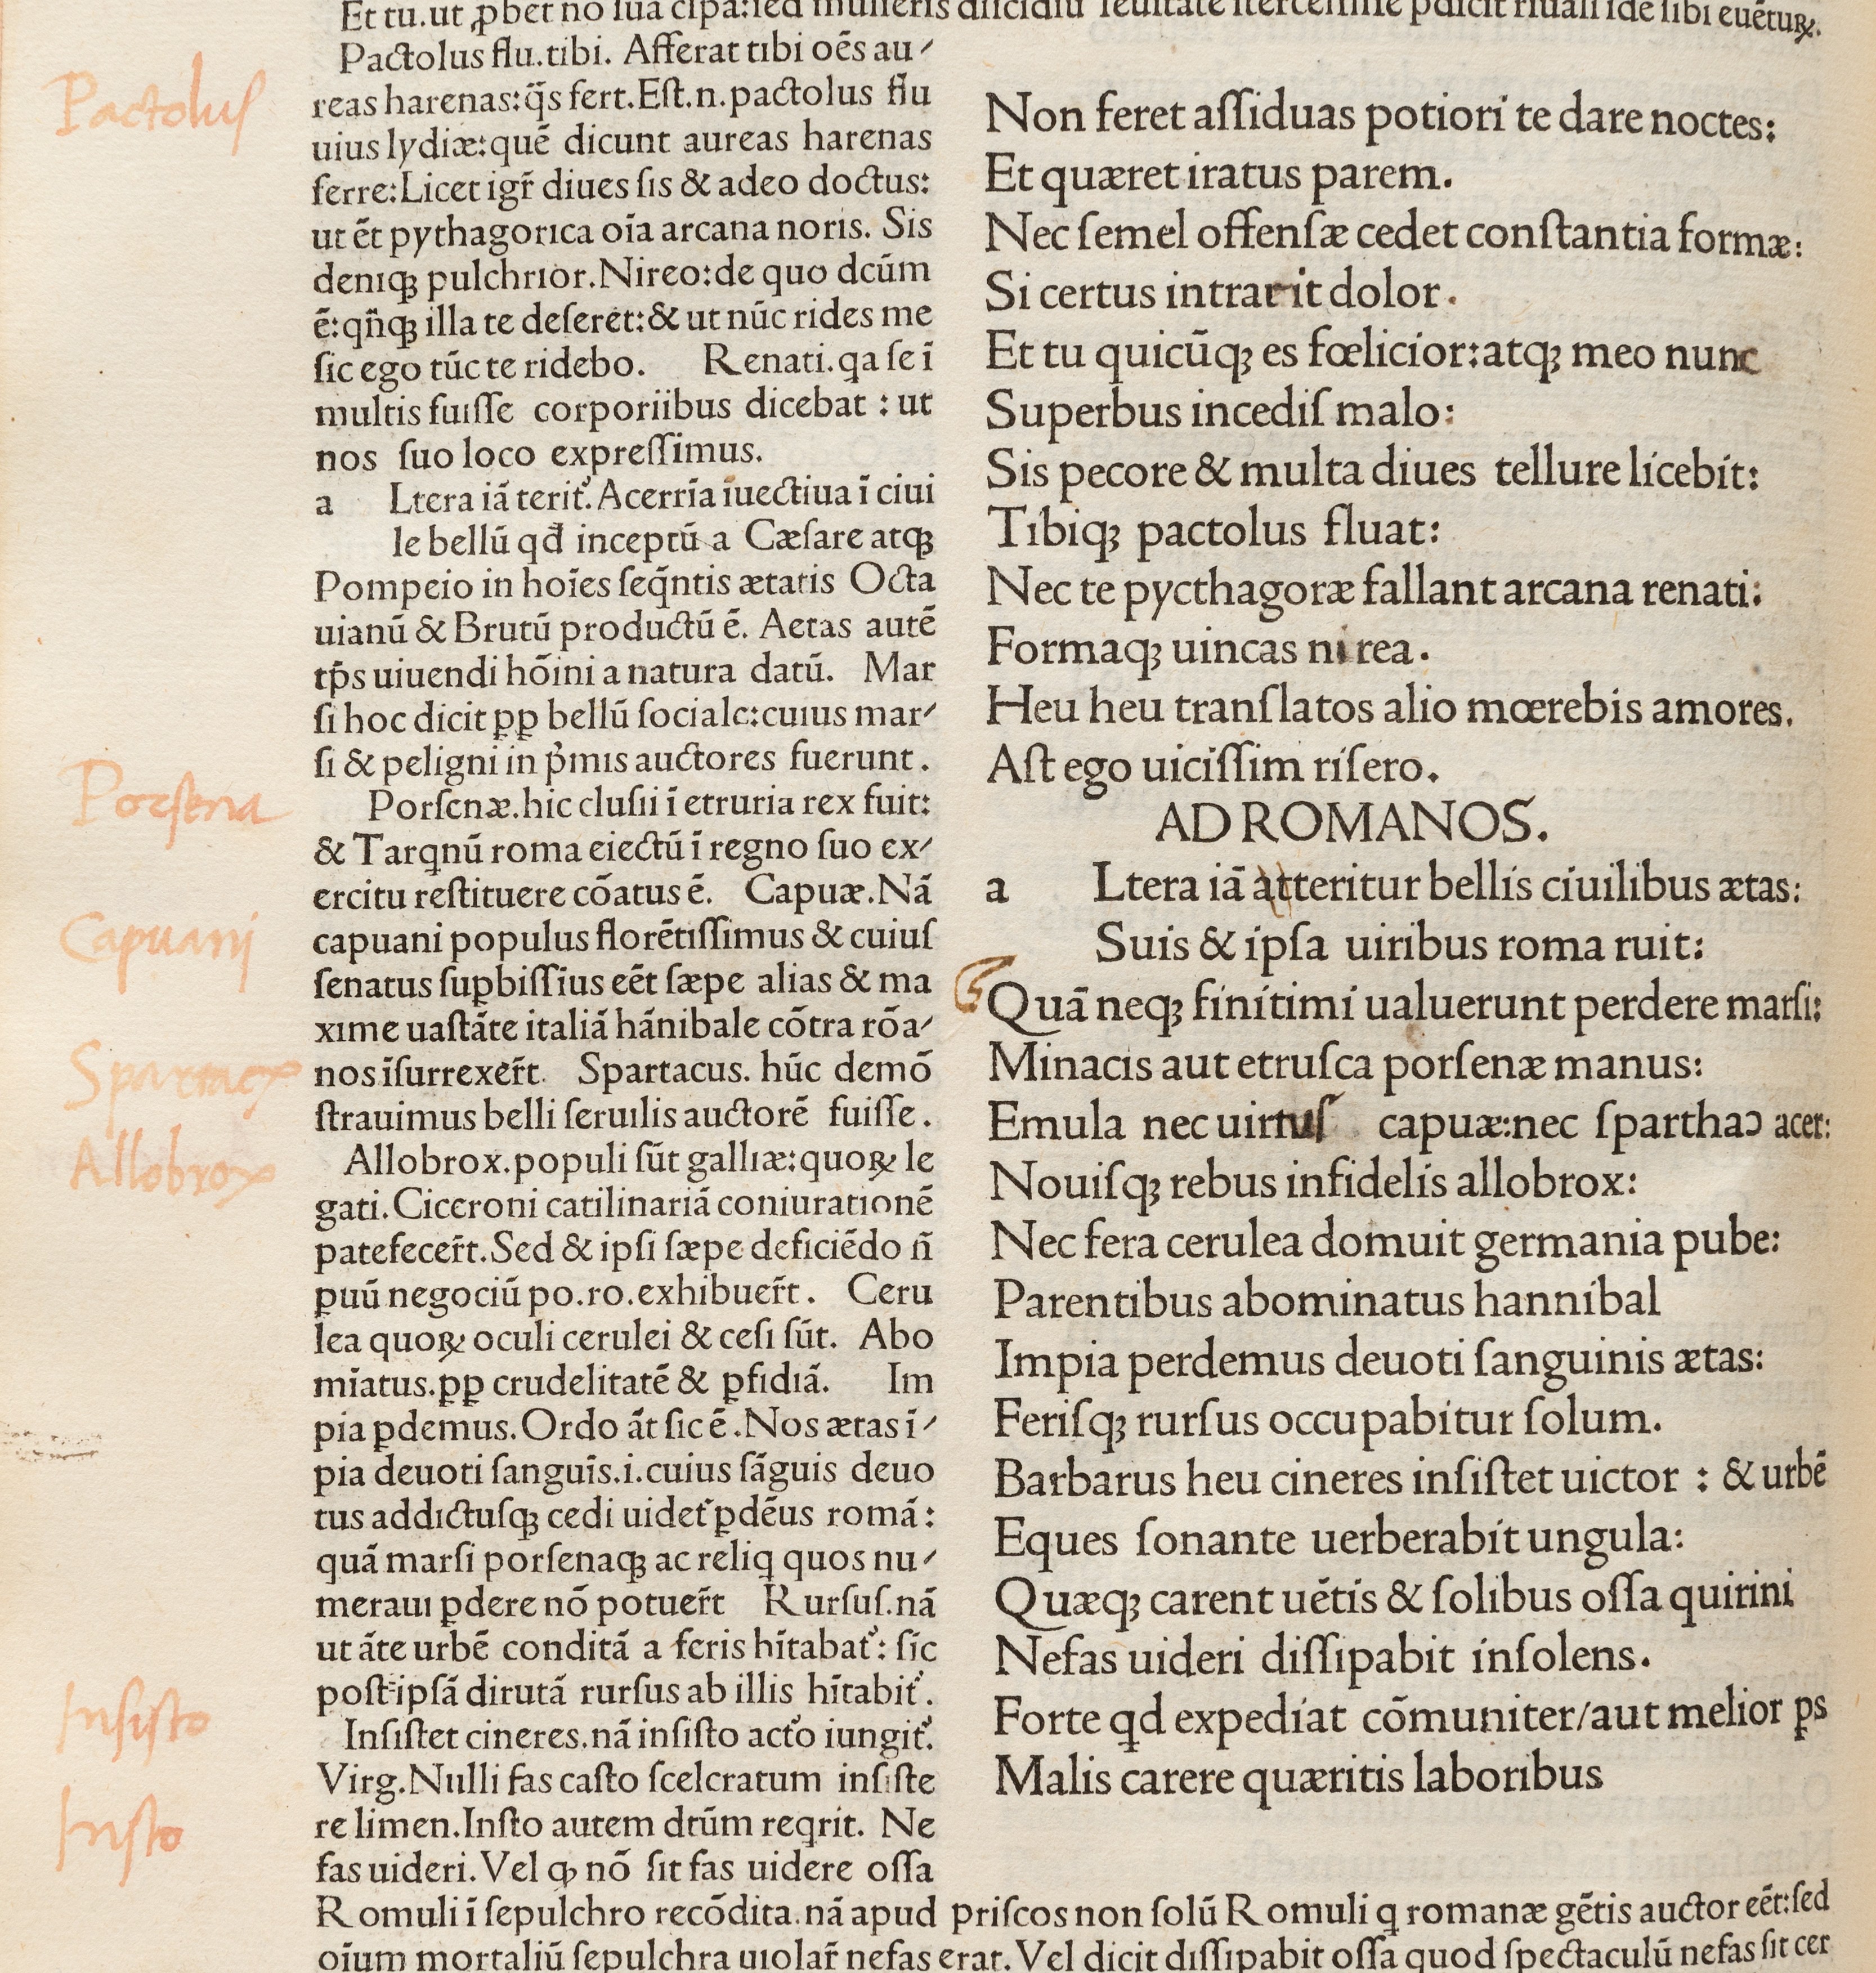 Et tu.ut ꝓbet nõ sua cĩpa:sed mulieris discidiũ leuitate
Pactolus flu.tibi. Afferat tibi oẽs au-
reas harenas:q̃s fert.Eſt.n.pactolus flu
uius lydiæ:quẽ dicunt aureas harenas
ferre:Licet igr̃ diues ſis & adeo doctus:
ut ẽt pythagorica oĩa arcana noris. Sis
deniqꝫ pulchrior.Nireo:de quo dcũm
ẽ:qñqꝫ illa te deſeret:& ut nũc rides me
ſic ego tũc te ridebo. Renati.qa ſe ĩ
multis fuiſſe corporiibus dicebat : ut
nos ſuo loco expreſſimus.
a Ltera iã terit᷑.Acerrĩa ĩuectiua ĩ ciui
le bellũ qđ inceptũ a Cæſare atqꝫ
Pompeio in hoĩes ſeq̃ntis ætatis Octa
uianũ & Brutũ productũ ẽ. Aetas autẽ
tp̃s uiuendi hõini a natura datũ. Mar
ſi hoc dicit ꝓꝑ bellũ ſociale:cuius mar-
ſi & peligni in p̃mis auctores fuerunt.
Porſenæ.hic cluſii ĩ etruria rex fuit:
& Tarqnũ roma eiectũ ĩ regno ſuo ex-
ercitu reſtituere cõatus ẽ. Capuæ.Nã
capuani populus florẽtiſſimus & cuiuſ
ſenatus ſuꝑbiſſius eẽt ſæpe alias & ma
xime uaſtãte italiã hãnibale cõtra rõa-
nos ĩſurrexer̃t. Spartacus. hũc demõ
ſtrauimus belli ſeruilis auctorẽ fuiſſe.
Allobrox.populi ſũt galliæ:quoꝝ le
gati.Ciceroni catilinariã coniurationẽ
patefecer̃t.Sed & ipſi ſæpe deficiẽdo ñ
puũ negociũ po.ro.exhibuer̃t. Ceru
lea quoꝝ oculi cerulei & ceſi ſũt. Abo
mĩatus.ꝓꝑ crudelitatẽ & ꝑfidiã. Im
pia ꝑdemus.Ordo ãt ſic ẽ.Nos ætas ĩ-
pia deuoti ſanguĩs.i.cuius ſãguis deuo
tus addictuſqꝫ cedi uidet᷑ ꝑdẽus romã:
quã marſi porſenaqꝫ ac reliq quos nu-
meraui ꝑdere nõ potuer̃t Rurſuſ.nã
ut ãte urbẽ conditã a feris hĩtabat᷑: ſic
poſt ipſã dirutã rurſus ab illis hĩtabit᷑.
Inſiſtet cineres.nã inſiſto act̃o iungit᷑.
Virg.Nulli fas caſto ſceleratum inſiſte
re limen.Inſto autem dtũm reqrit. Ne
fas uideri.Vel ꝙ nõ ſit fas uidere oſſa
Romuli ĩ ſepulchro recõdita.nã apud priſcos non ſolũ Romuli q romanæ gẽtis auctor eẽt:ſed
oĩum mortaliũ ſepulchra uiolar̃ nefas erat. Vel dicit diſſipabit oſſa quod ſpectaculũ nefas ſit cer
Non feret aſſiduas potiori te dare noctes:
Et quæret iratus parem.
Nec ſemel offenſæ cedet conſtantia formæ:
Si certus intrarit dolor.
Et tu quicũqꝫ es fœlicior:atqꝫ meo nunc
Superbus incediſ malo:
Sis pecore & multa diues tellure licebit:
Tibiqꝫ pactolus fluat:
Nec te pycthagoræ fallant arcana renati:
Formaqꝫ uincas nirea.
Heu heu tranſlatos alio mœrebis amores.
Aſt ego uiciſſim riſero.
AD ROMANOS.
a Ltera iã atteritur bellis ciuilibus ætas:
Suis & ipſa uiribus roma ruit:
Quã neqꝫ finitimi ualuerunt perdere marſi:
Minacis aut etruſca porſenæ manus:
Emula nec uirtuſ capuæ:nec ſparthaↄ acer:
Nouiſqꝫ rebus infidelis allobrox:
Nec fera cerulea domuit germania pube:
Parentibus abominatus hannibal
Impia perdemus deuoti ſanguinis ætas:
Feriſqꝫ rurſus occupabitur ſolum.
Barbarus heu cineres inſiſtet uictor : & urbẽ
Eques ſonante uerberabit ungula:
Quæqꝫ carent uẽtis & ſolibus oſſa quirini
Nefas uideri diſſipabit inſolens.
Forte qd expediat cõmuniter/aut melior ps
Malis carere quæritis laboribus
Pactoluſ
Porſena
Capuani
Allobrox
Inſiſto
Inſto